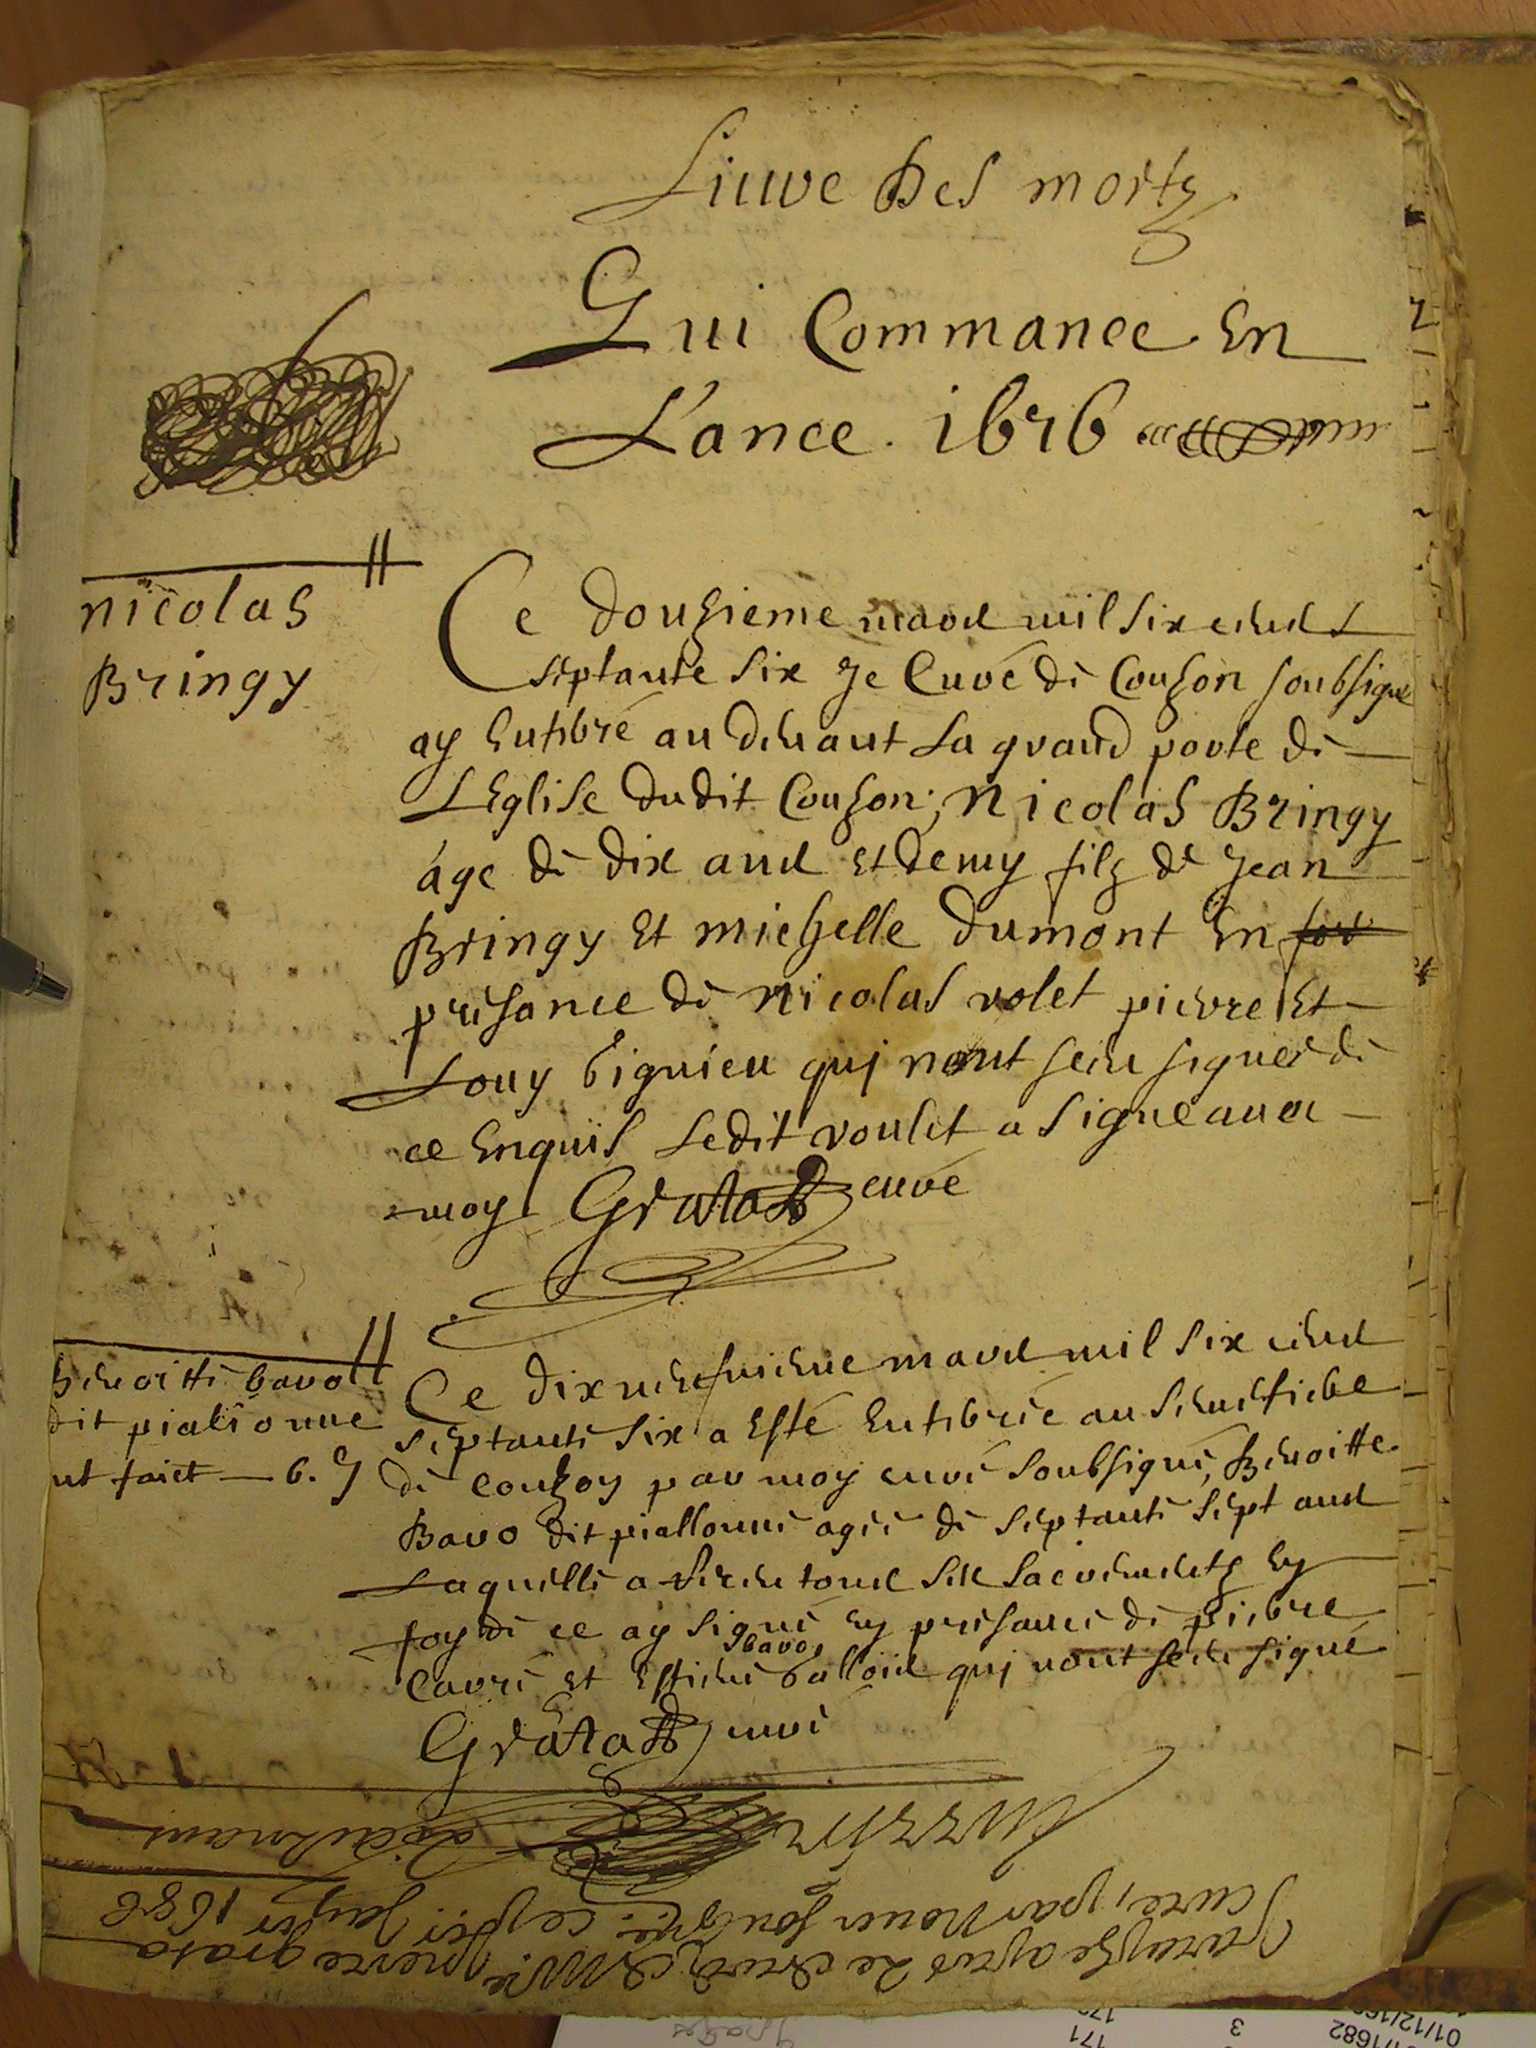 Livre Des mortz
Qui Commance En
L'ance . 1676
nicolas
Bringy
Ce douzieme mars mil six cents
septante six Je Curé de Couzon soubsigné
ay Enterré au devant la grand porte de
L'Eglise dudit Couzon; Nicolas Bringy
âge de dix ans et demy filz de Jean
Bringy Et michelle dumont En for
presance de nicolas volet pierre Et
Louy viguieu qui n'ont sceu signer de
ce Enquis Ledit voulet a signe avec
moy Grata curé
Benoitte bavo
dit pialionne
ut faict — 6. 7
Ce dixneufvieme mars mil six cens
septante six a Esté Enterrée au Simestiere
de Couzon par moy curé soubsigné, Benoitte
Bavo dit piallonne agee de septante sept ans
Laquelle a receu tous ses sacrements En
foy de ce ay signé En presance de pierre
bavo
Cavre et Estiene valloid qui n'ont sceu signé
Grata curé
curé, par nous ce 1686
pierre grata
01/12/168
172
/1682
3
171